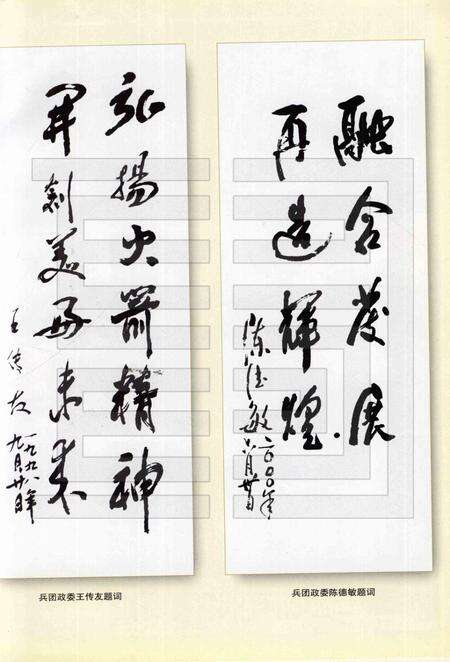 弘揚火箭精神
開創美好未来
王传友
一九九八年
九月廿日
兵团政委王传友题词
融合发展
再造輝煌
陈德敏
二〇〇〇年
兵团政委陈德敏题词